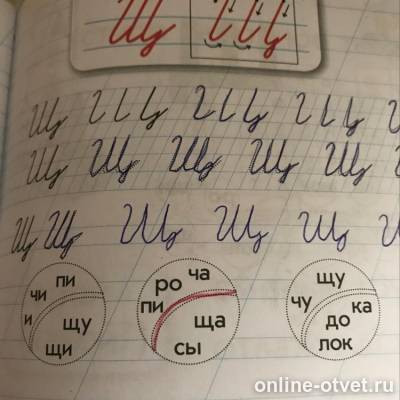 Щ
Щ
Щ Щ Щ Щ Щ
Щ Щ Щ Щ Щ
чи пи
и щу
щи
ро ча
пи ща
сы
щу
чу ка
до
лок
online-otvet.ru